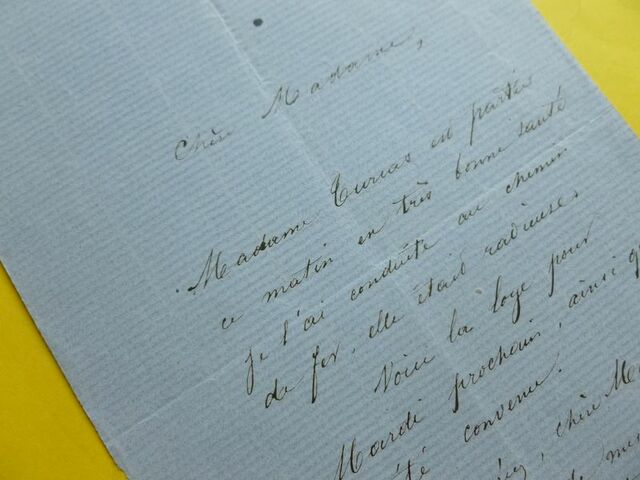 Chère Madame,
Madame Turcas est partie
ce matin en très bonne santé
je l'ai conduite au chemin
de fer, elle était radieuse.
Voici la loge pour
Mardi prochain, ainsi q
été convenu.
chère Ma
de